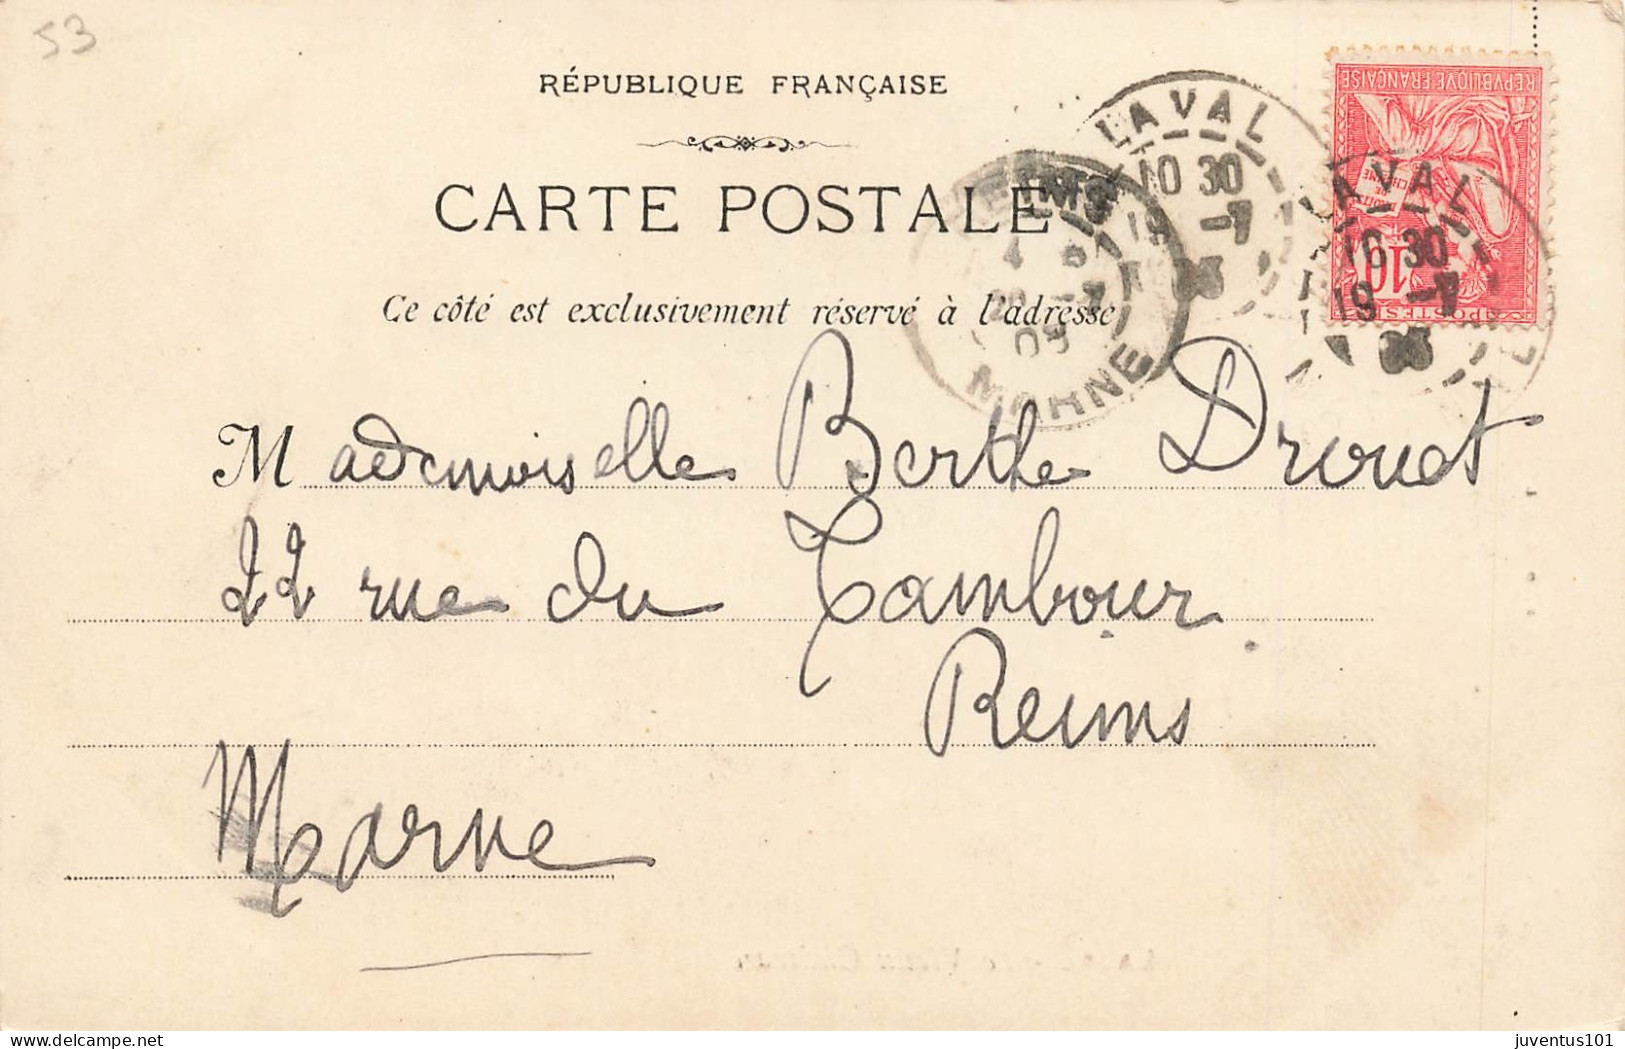 53
RÉPUBLIQUE FRANÇAISE
CARTE POSTALE
Ce côté est exclusivement réservé à l'adresse
LAVAL
10 30
19 -7
REIMS
03
MARNE
REPVBLIQVE FRANÇAISE
10
POSTES
LAVAL
16 30
19 -7
Mademoiselle Berthe Drouet
22 rue du Tambour
Reims
Marne
delcampe.net
juventus101